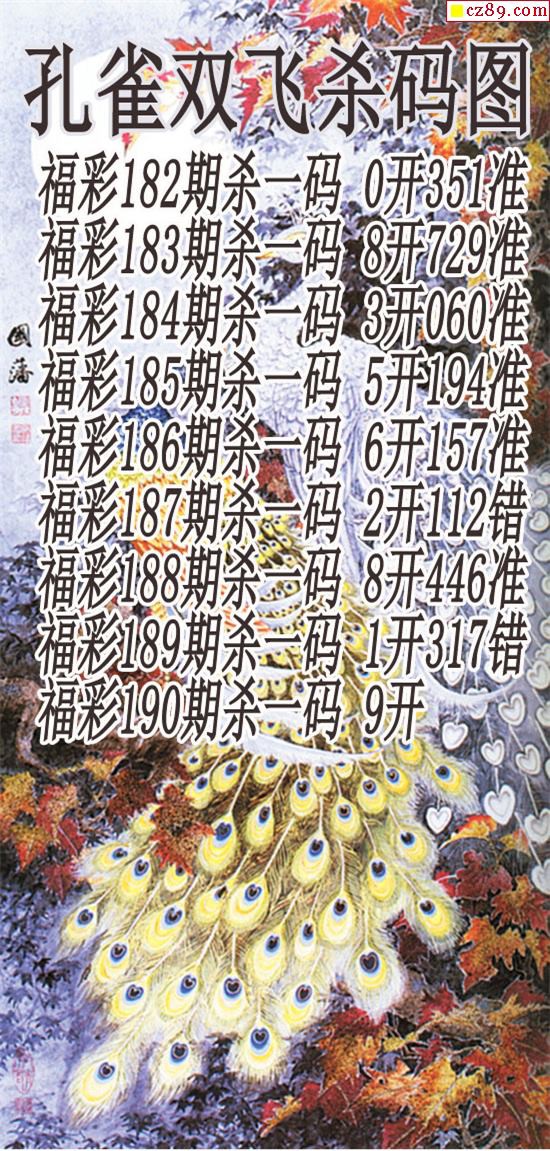 cz89.com
孔雀双飞杀码图
福彩182期杀一码 0开351准
福彩183期杀一码 8开729准
福彩184期杀一码 3开060准
福彩185期杀一码 5开194准
福彩186期杀一码 6开157准
福彩187期杀一码 2开112错
福彩188期杀一码 8开446准
福彩189期杀一码 1开317错
福彩190期杀一码 9开
國藩